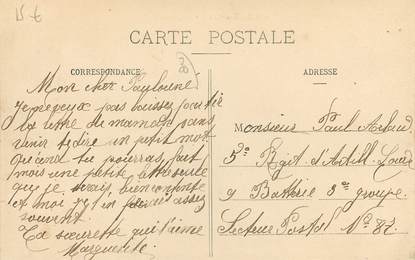 15 €
CARTE POSTALE
CORRESPONDANCE
ADRESSE
Mon cher Pauloune
Je ne peux pas laisser partir
la lettre de maman sans
venir te dire un petit mot
Quand tu pourras fait
mois une petite
que je serais bien contente
et moi je t'en ferai assez
souvent.
Ta sœurette qui t'aime
Marguerite.
Monsieur Paul
5e Regt d'Artill. Lourde
9 Batterie 3e groupe.
Secteur Postal No 87.